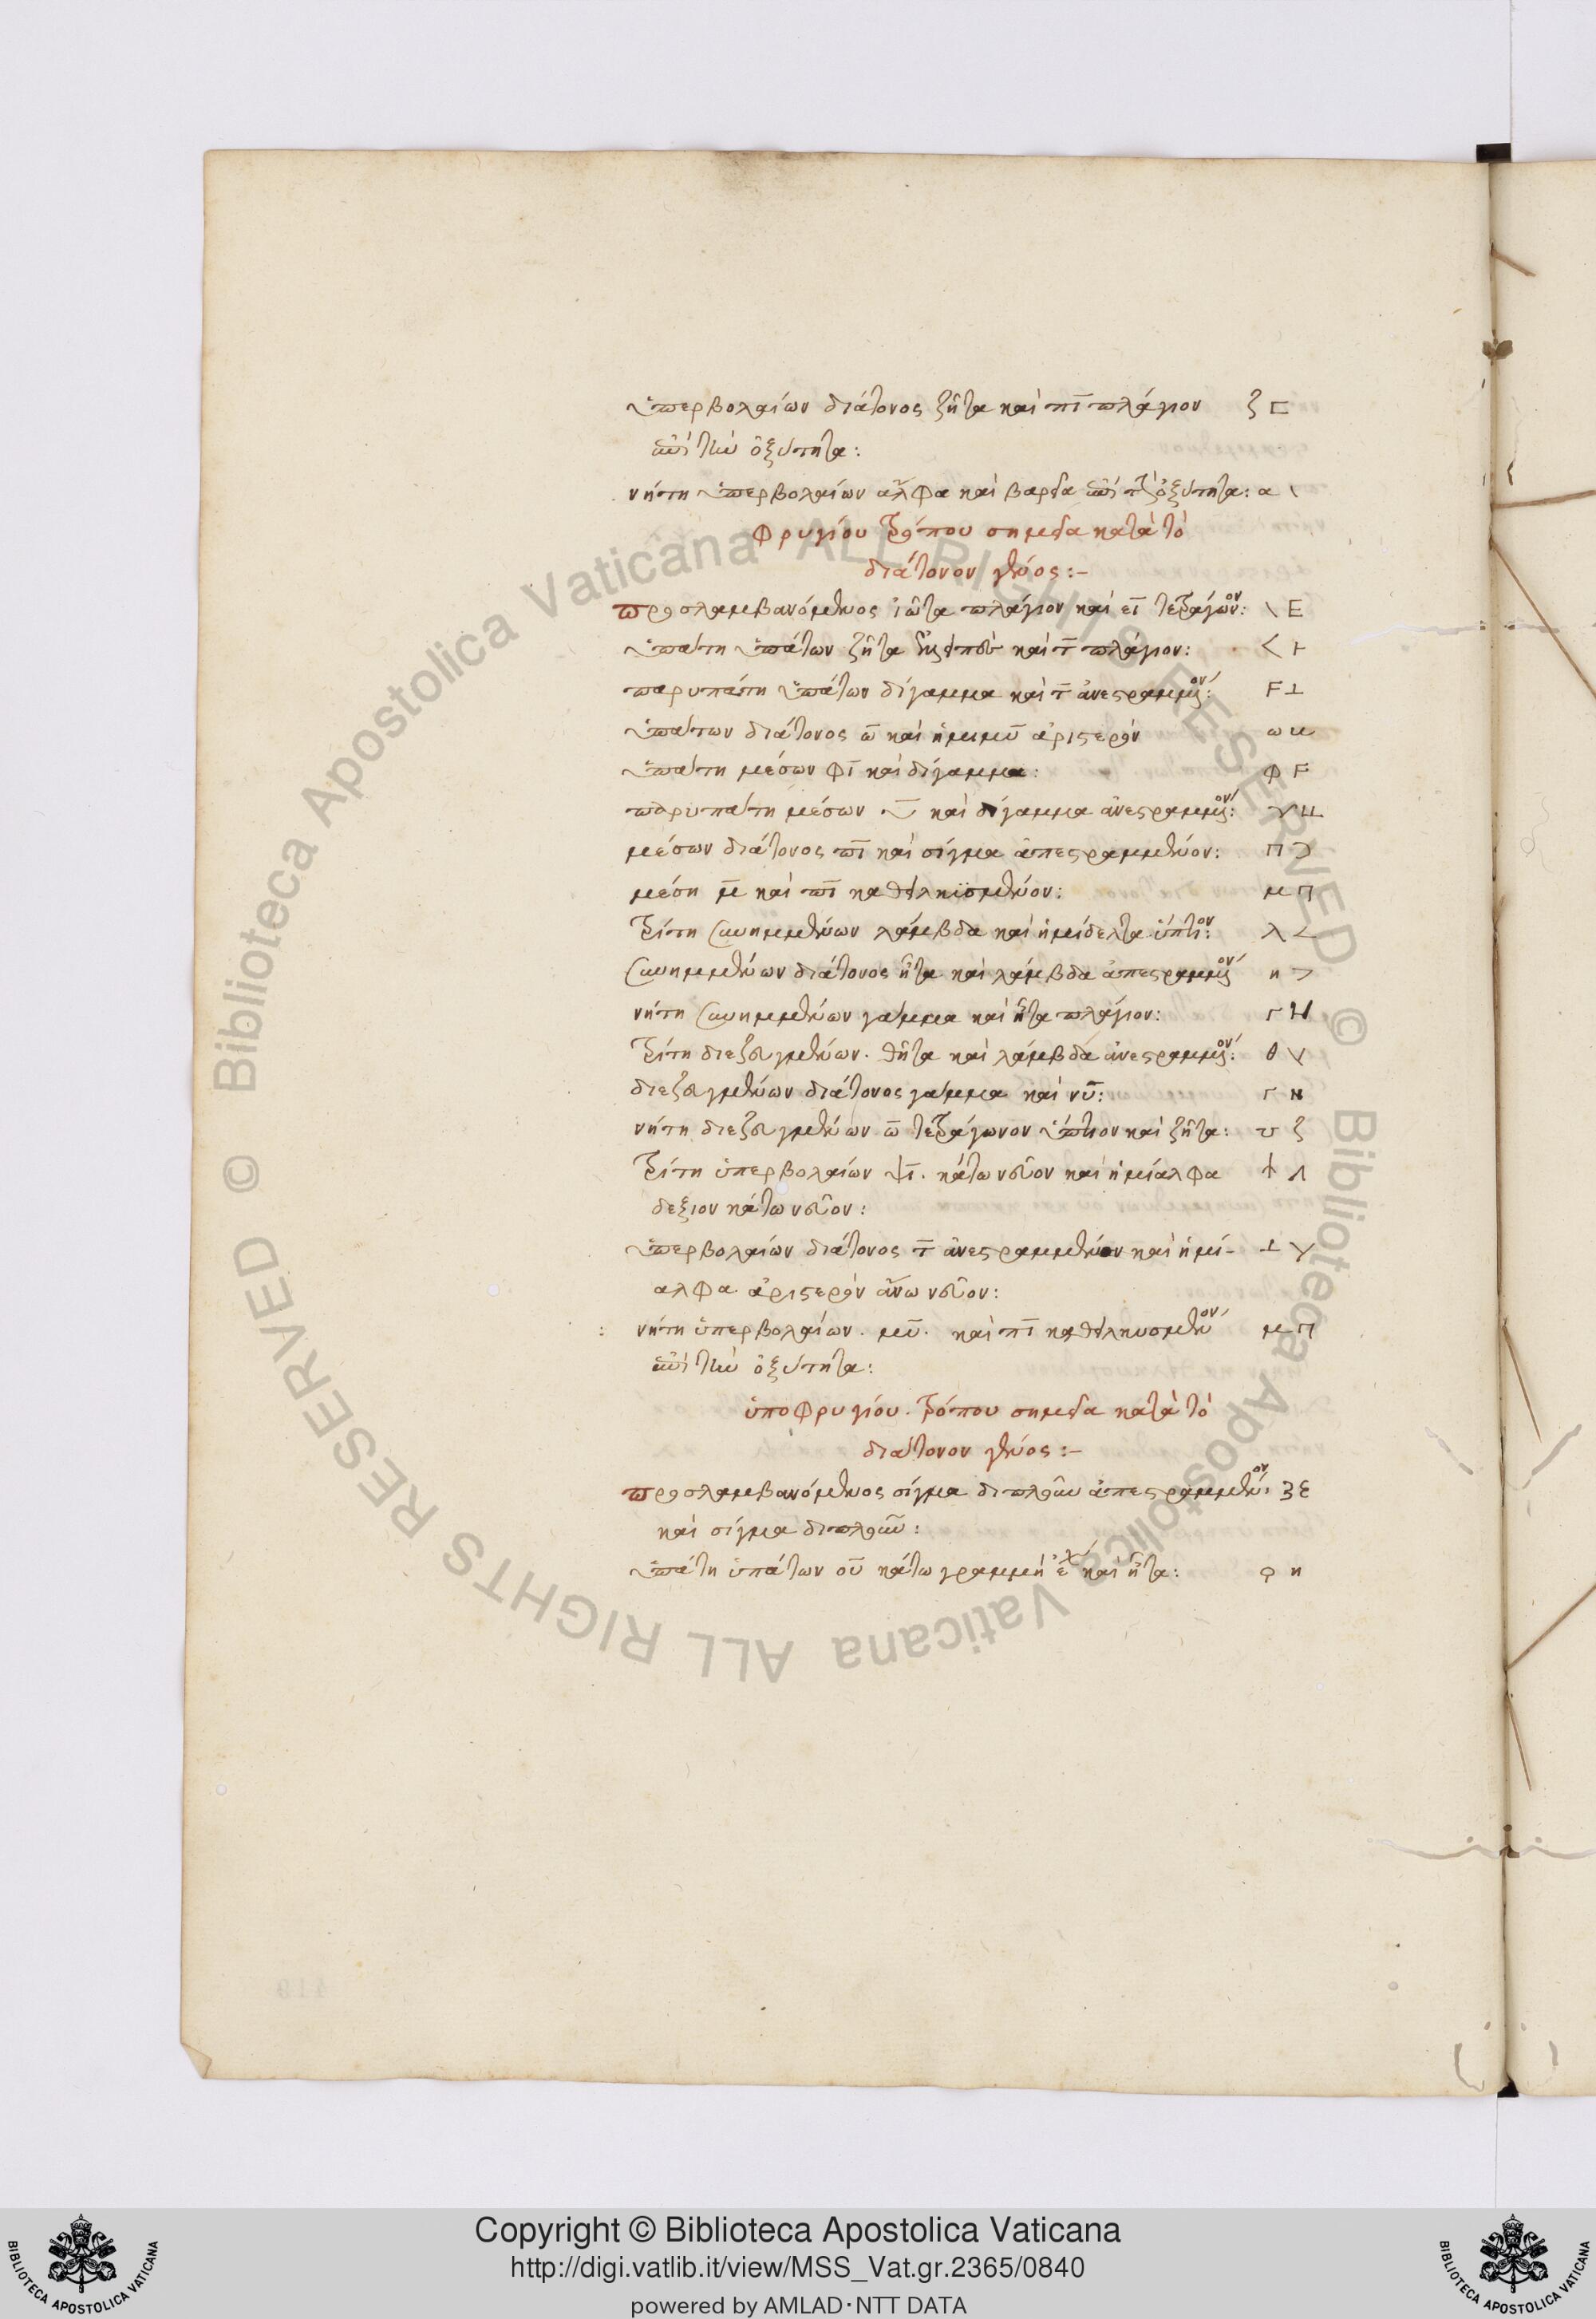 ὑπερβολαίων διάτονος ζῆτα καὶ πῖ πλάγιον ζ ⊏
ἐπὶ τὴν ὀξύτητα:
νήτη ὑπερβολαίων ἄλφα καὶ βαρεῖα ἐπὶ τὴν ὀξύτητα: α \
Φρυγίου τρόπου σημεῖα κατὰ τὸ
διάτονον γένος:–
προσλαμβανόμενος ἰῶτα πλάγιον καὶ ει τετράγωνον: \ Ε
ὑπάτη ὑπάτων ζῆτα καὶ τ πλάγιον: < ⊢
παρυπάτη ὑπάτων δίγαμμα καὶ τ ἀνεστραμμένον: Ϝ ⊥
ὑπάτων διάτονος ω καὶ ἡμιμυ ἀριστερόν ω
ὑπάτη μέσων φι καὶ δίγαμμα: φ Ϝ
παρυπάτη μέσων υ καὶ δίγαμμα ἀνεστραμμένον: υ
μέσων διάτονος πι καὶ σίγμα ἀπεστραμμένον: π Ɔ
μέση μ καὶ πι καθειλκισμένον: μ π
τρίτη συνημμένων λάμβδα καὶ ἡμίδελτα ὕπτιον: λ <
συνημμένων διάτονος ἦτα καὶ λάμβδα ἀπεστραμμένον η >
νήτη συνημμένων γάμμα καὶ ἦτα πλάγιον: Γ Η
τρίτη διεζευγμένων. θῆτα καὶ λάμβδα ἀνεστραμμένον: θ V
διεζευγμένων διάτονος γάμμα καὶ νῦ: Γ Ν
νήτη διεζευγμένων ω τετράγωνον ὕπτιον καὶ ζῆτα: ʊ ζ
τρίτη ὑπερβολαίων ψι. κάτω νεῦον καὶ ἡμίαλφα
δεξιὸν κάτω νεῦον:
ὑπερβολαίων διάτονος τ ἀνεστραμμένον καὶ ἡμί- ⊥ Y
αλφα ἀριστερὸν ἄνω νεῦον:
: νήτη ὑπερβολαίων. μῦ. καὶ πῖ καθειλκυσμένον μ π
ἐπὶ τὴν ὀξύτητα:
ὑποφρυγίου. τρόπου σημεῖα κατὰ τὸ
διάτονον γένος:–
προσλαμβανόμενος σίγμα διπλοῦν ἀπεστραμμένον: 3 ε
καὶ σίγμα διπλοῦν:
ὑπάτη ὑπάτων οὐ κάτω γραμμὴν ἔχον καὶ ἦτα: ϙ η
Copyright © Biblioteca Apostolica Vaticana
http://digi.vatlib.it/view/MSS_Vat.gr.2365/0840
powered by AMLAD·NTT DATA
BIBLIOTECA APOSTOLICA VATICANA
BIBLIOTECA APOSTOLICA VATICANA
© Biblioteca Apostolica Vaticana ALL RIGHTS RESERVED
© Biblioteca Apostolica Vaticana ALL RIGHTS RESERVED